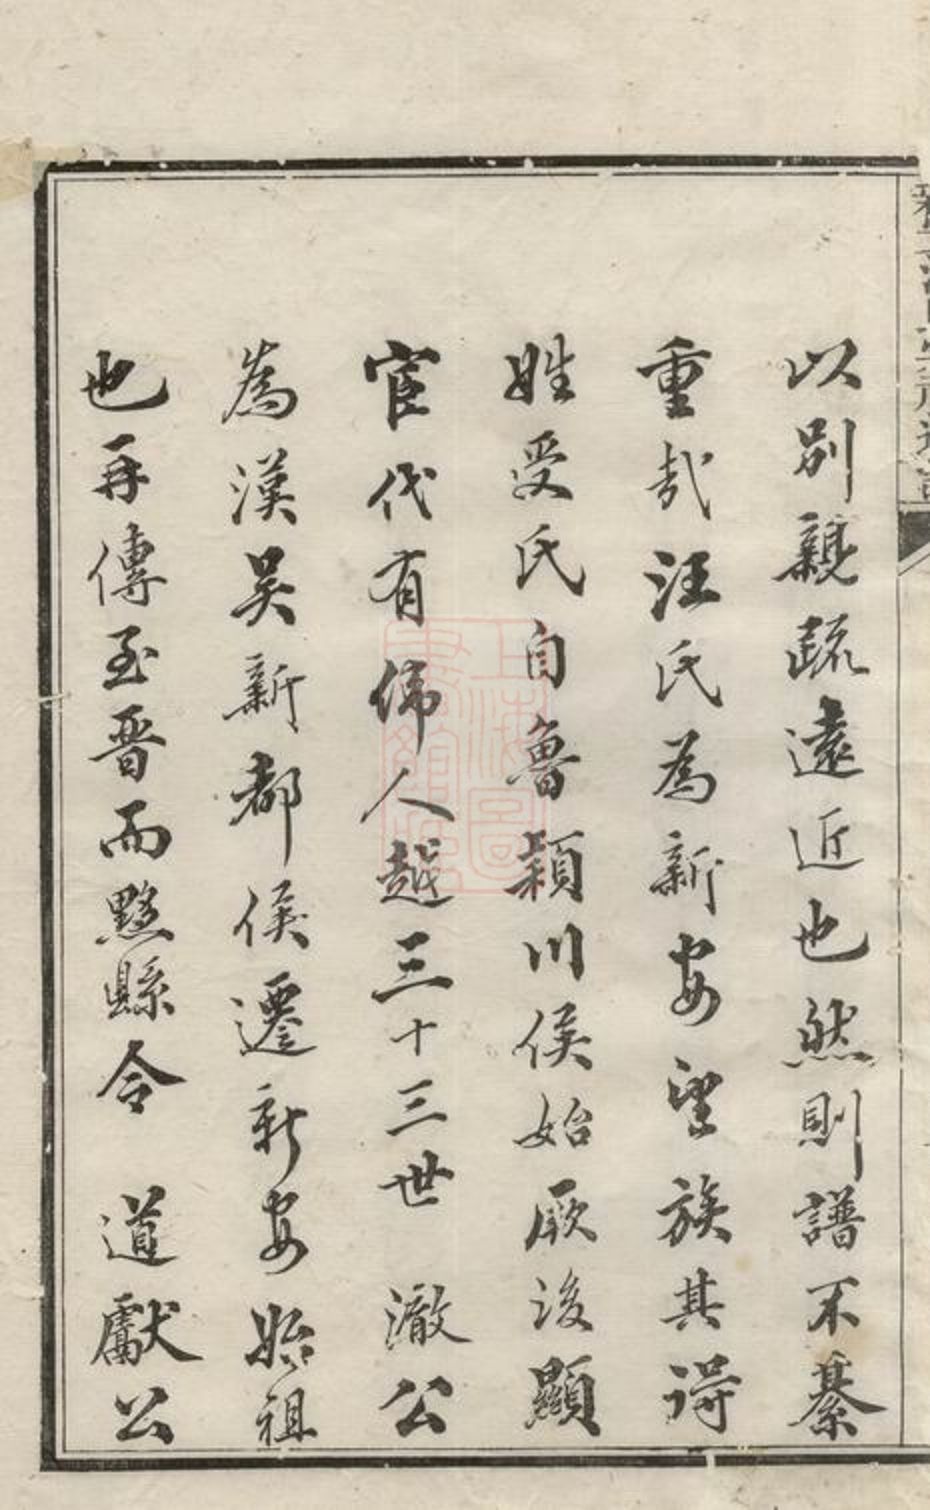 以別親疏遠近也然則譜不綦
重哉汪氏為新安望族其得
姓受氏自魯潁川侯始厥後顯
宦代有偉人越三十三世　澈公
為漢吴新都侯遷新安始祖
也再傳至晉而黟縣令　道獻公
上海圖書館藏